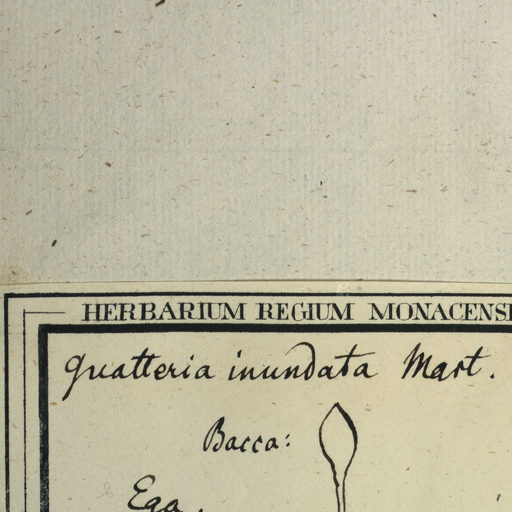 HERBARIUM REGIUM MONACENS
Guatteria inundata Mart.
Bacca:
Ega.